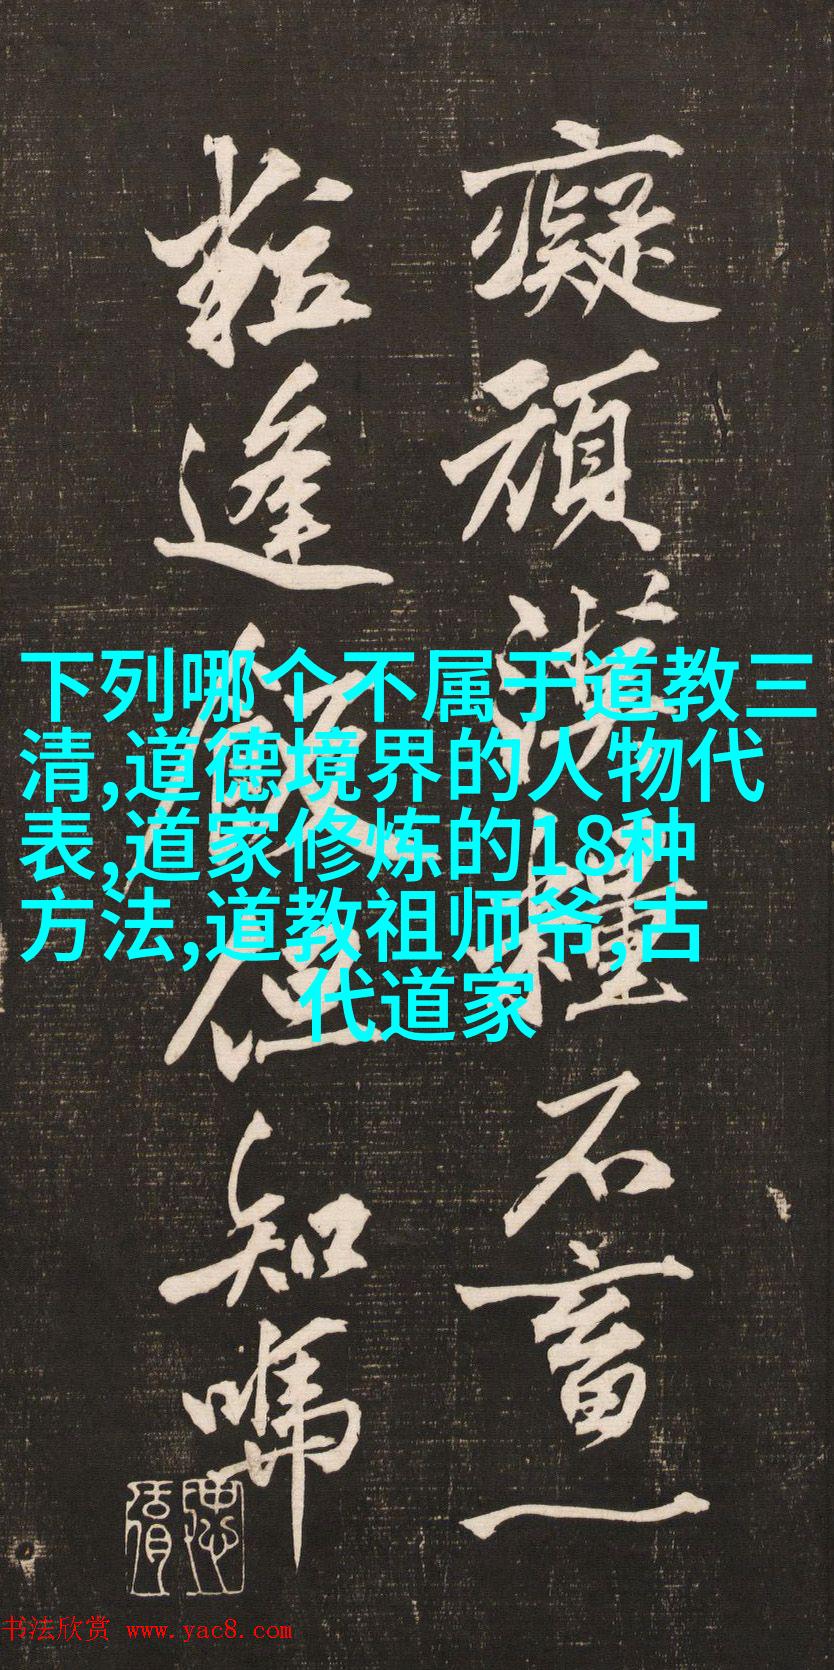 癡頑漢糧不畜一
粒逢飯但知嗎
下列哪个不属于道教三
清,道德境界的人物代
表,道家修炼的18种
方法,道教祖师爷,古
代道家
书法欣赏 www.yac8.com